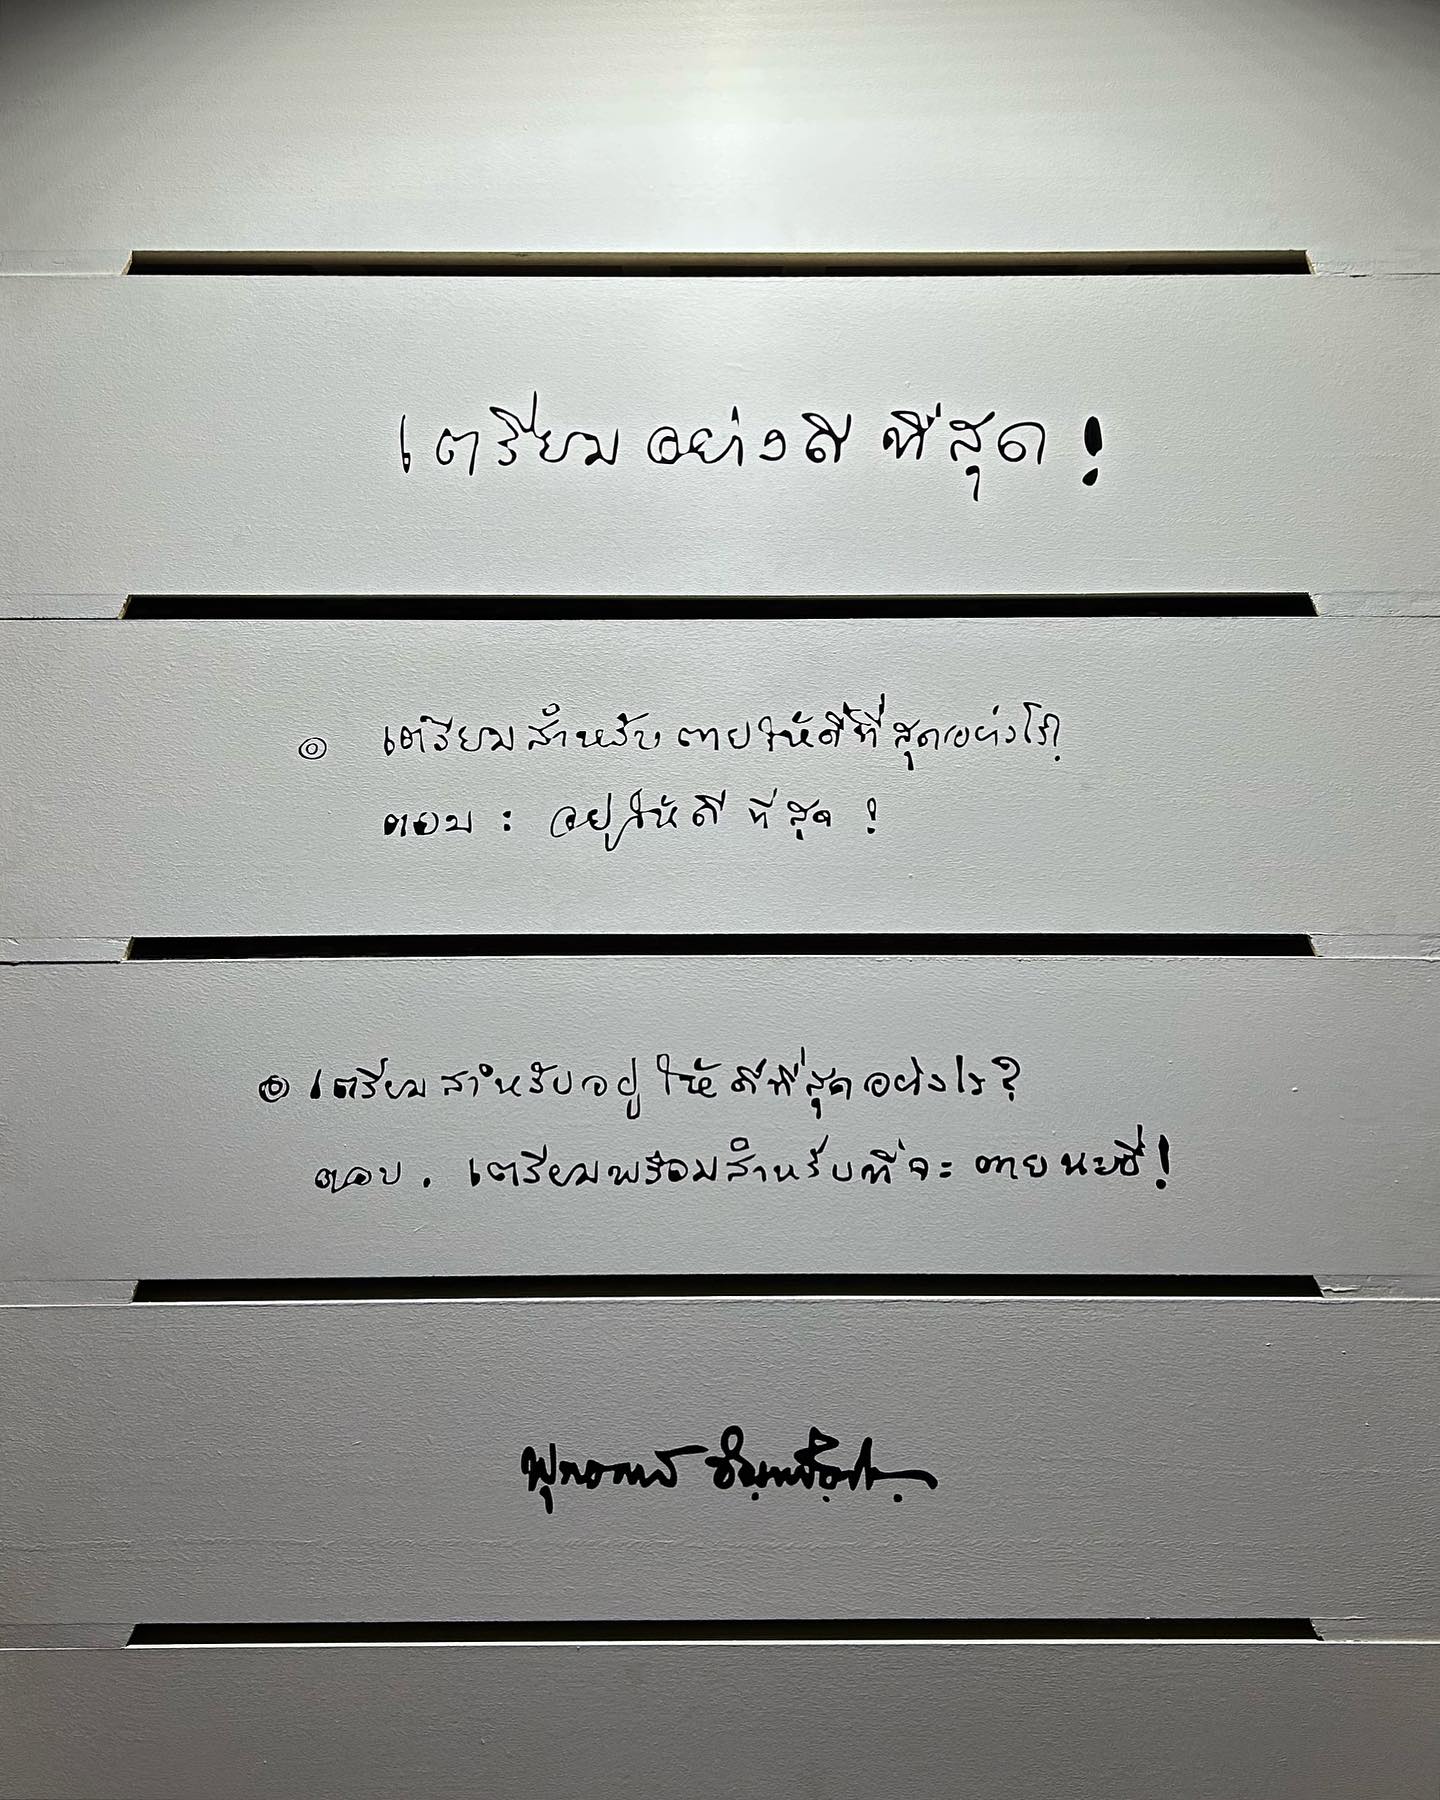 เตรียมอย่างดีที่สุด!
๏ เตรียมสำหรับตายให้ดีที่สุดอย่างไร?
ตอบ : อยู่ให้ดีที่สุด !
๏ เตรียมสำหรับอยู่ให้ดีที่สุดอย่างไร?
ตอบ . เตรียมพร้อมสำหรับที่จะตายนะซี่!
พุทธทาส อินฺทปญฺโญ